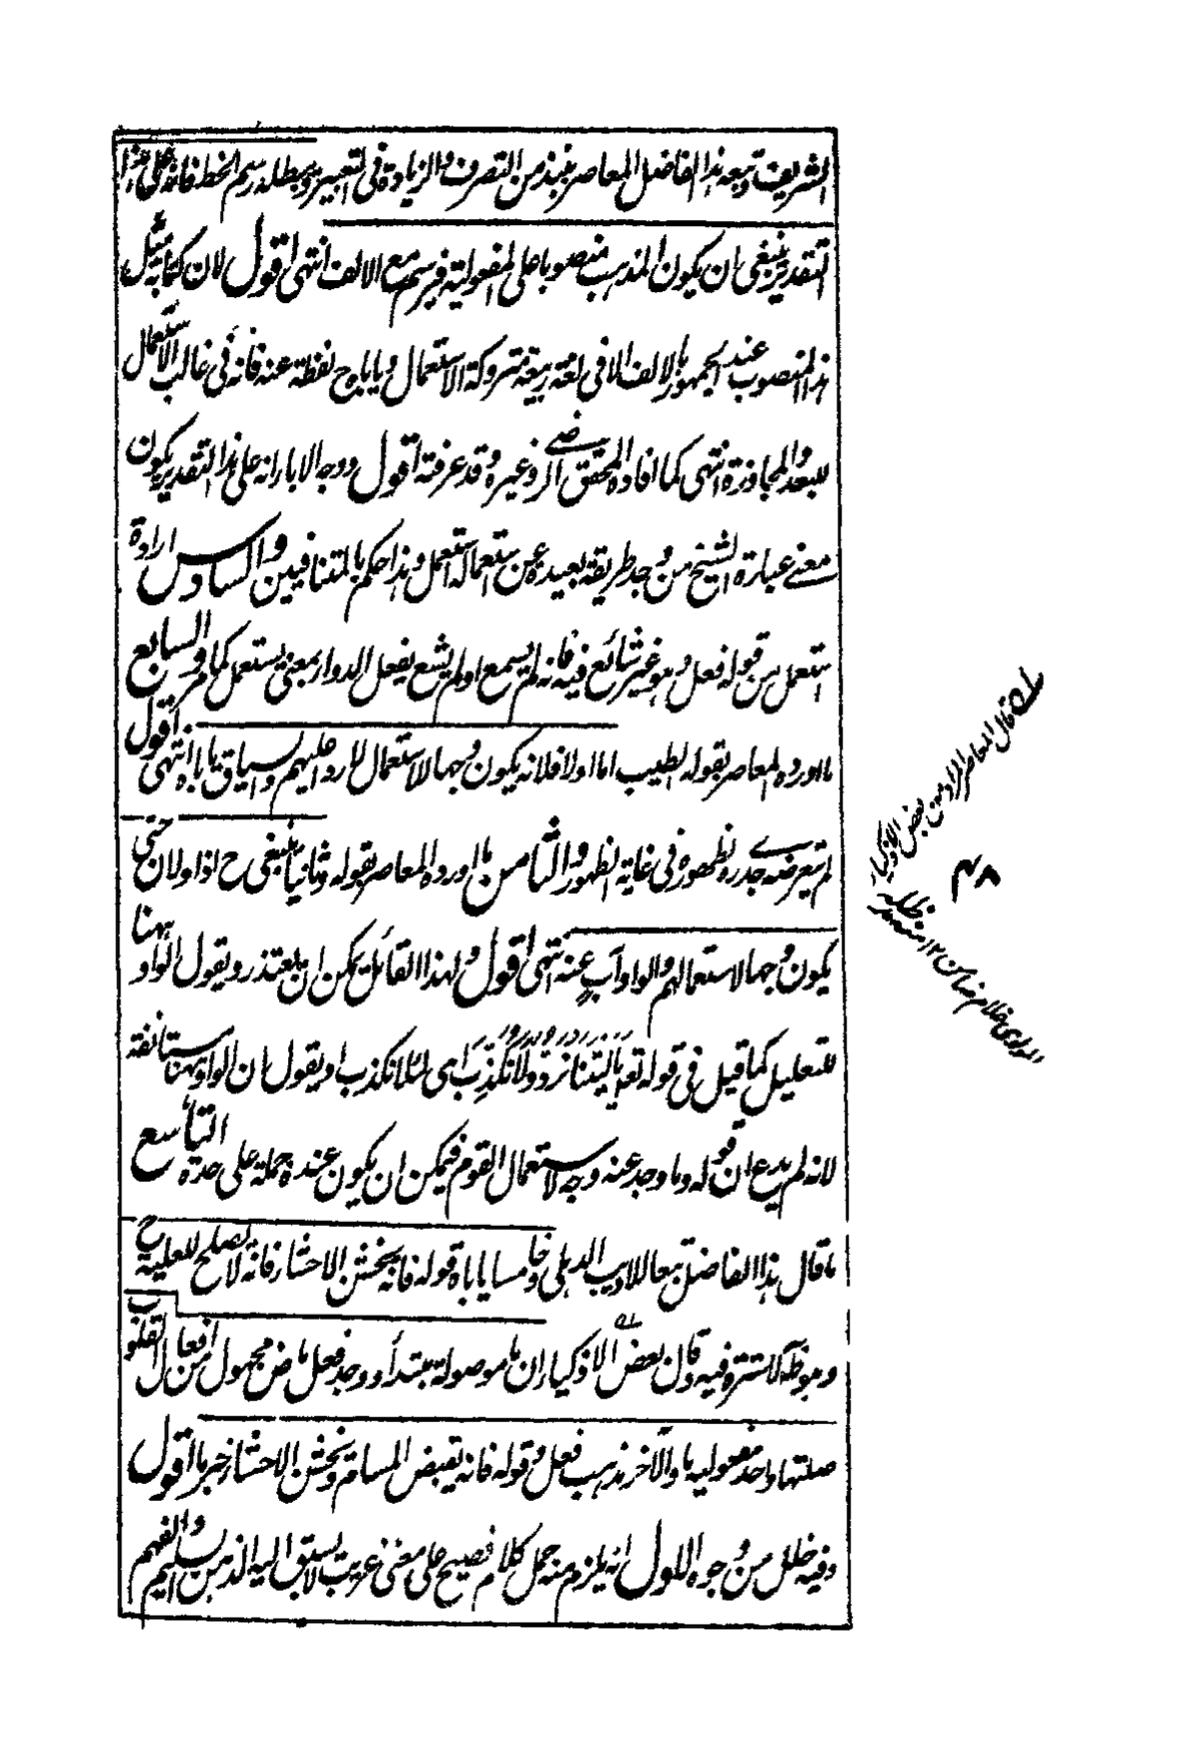 الشريف وتبعه هذا الفاضل المعاصر بنبذ من التصرف والزيادة في التعبير ويبطله رسم الخط فانه على هذا
التقدير ينبغي ان يكون المذهب منصوبا على المفعولية فيرسم مع الالف انتهى اقول لان كتابة مثل
هذا المنصوب عند الجمهور بالالف الا في لغة ربيعة متروكة الاستعمال ويأباه ح لفظة عنه فانه في غالب الاستعمال
للبعد والمجاوزة انتهى كما افاده المحقق الرضي وغيره وقد عرفته اقول ووجه الاباء انه على هذا التقدير يكون
معنى عبارة الشيخ من وجد طريقة بعيدة عن استعماله استعمل وهذا حكم بالمتنافيين والسادس ارادة
استعمل من قوله فعل وهو غير شائع فيه فانه لم يسمع او لم يشع يفعل الدواء بمعنى يستعمل كما مر والسابع
ما اورده المعاصر بقوله لطيب اما اولا فلانه يكون وجها للاستعمال لا ردا عليهم والسياق ياباه انتهى اقول
لم يتعرض جدي لظهوره في غاية الظهور والثامن ما اورده المعاصر بقوله وثانيا ينبغي ح اذا ولان حتى
يكون وجها لاستعمالهم والواو آب عنه انتهى اقول ولهذا القائل يمكن ان يعتذر ويقول الواو ههنا
للتعليل كما قيل في قوله تعه يا ليتنا نرد ولا نكذب اى لئلا نكذب او يقول ان الواو ههنا مستانفة
لانه لم يدع ان قوله وما وجد عنه وجه لاستعمال القوم فيمكن ان يكون عنده جملة على حدة التاسع
ما قال هذا الفاضل تبعا للاديب الدهلي وخامسا ياباه قوله فانه يخشن الاحشاء فانه لا يصلح للعلية ح
وهو ظه لا سترة فيه وقال بعض الاذكياء ان ما موصولة مبتدأ ووجد فعل ماض مجهول من افعال القلوب
صلتها واحد مفعوليه ما والآخر مذهب فعل وقوله فانه يقبض المسام ويخشن الاحشاء خبر ما اقول
وفيه خلل من وجوه الاول انه يلزم منه حمل كلام فصيح على معنى غريب لا يسبق اليه الذهن السليم والفهم
له قال المعاصر المراد من بعض الاذكياء
المولوي غلام ضامن ١٢ منه مد ظله
٤٨